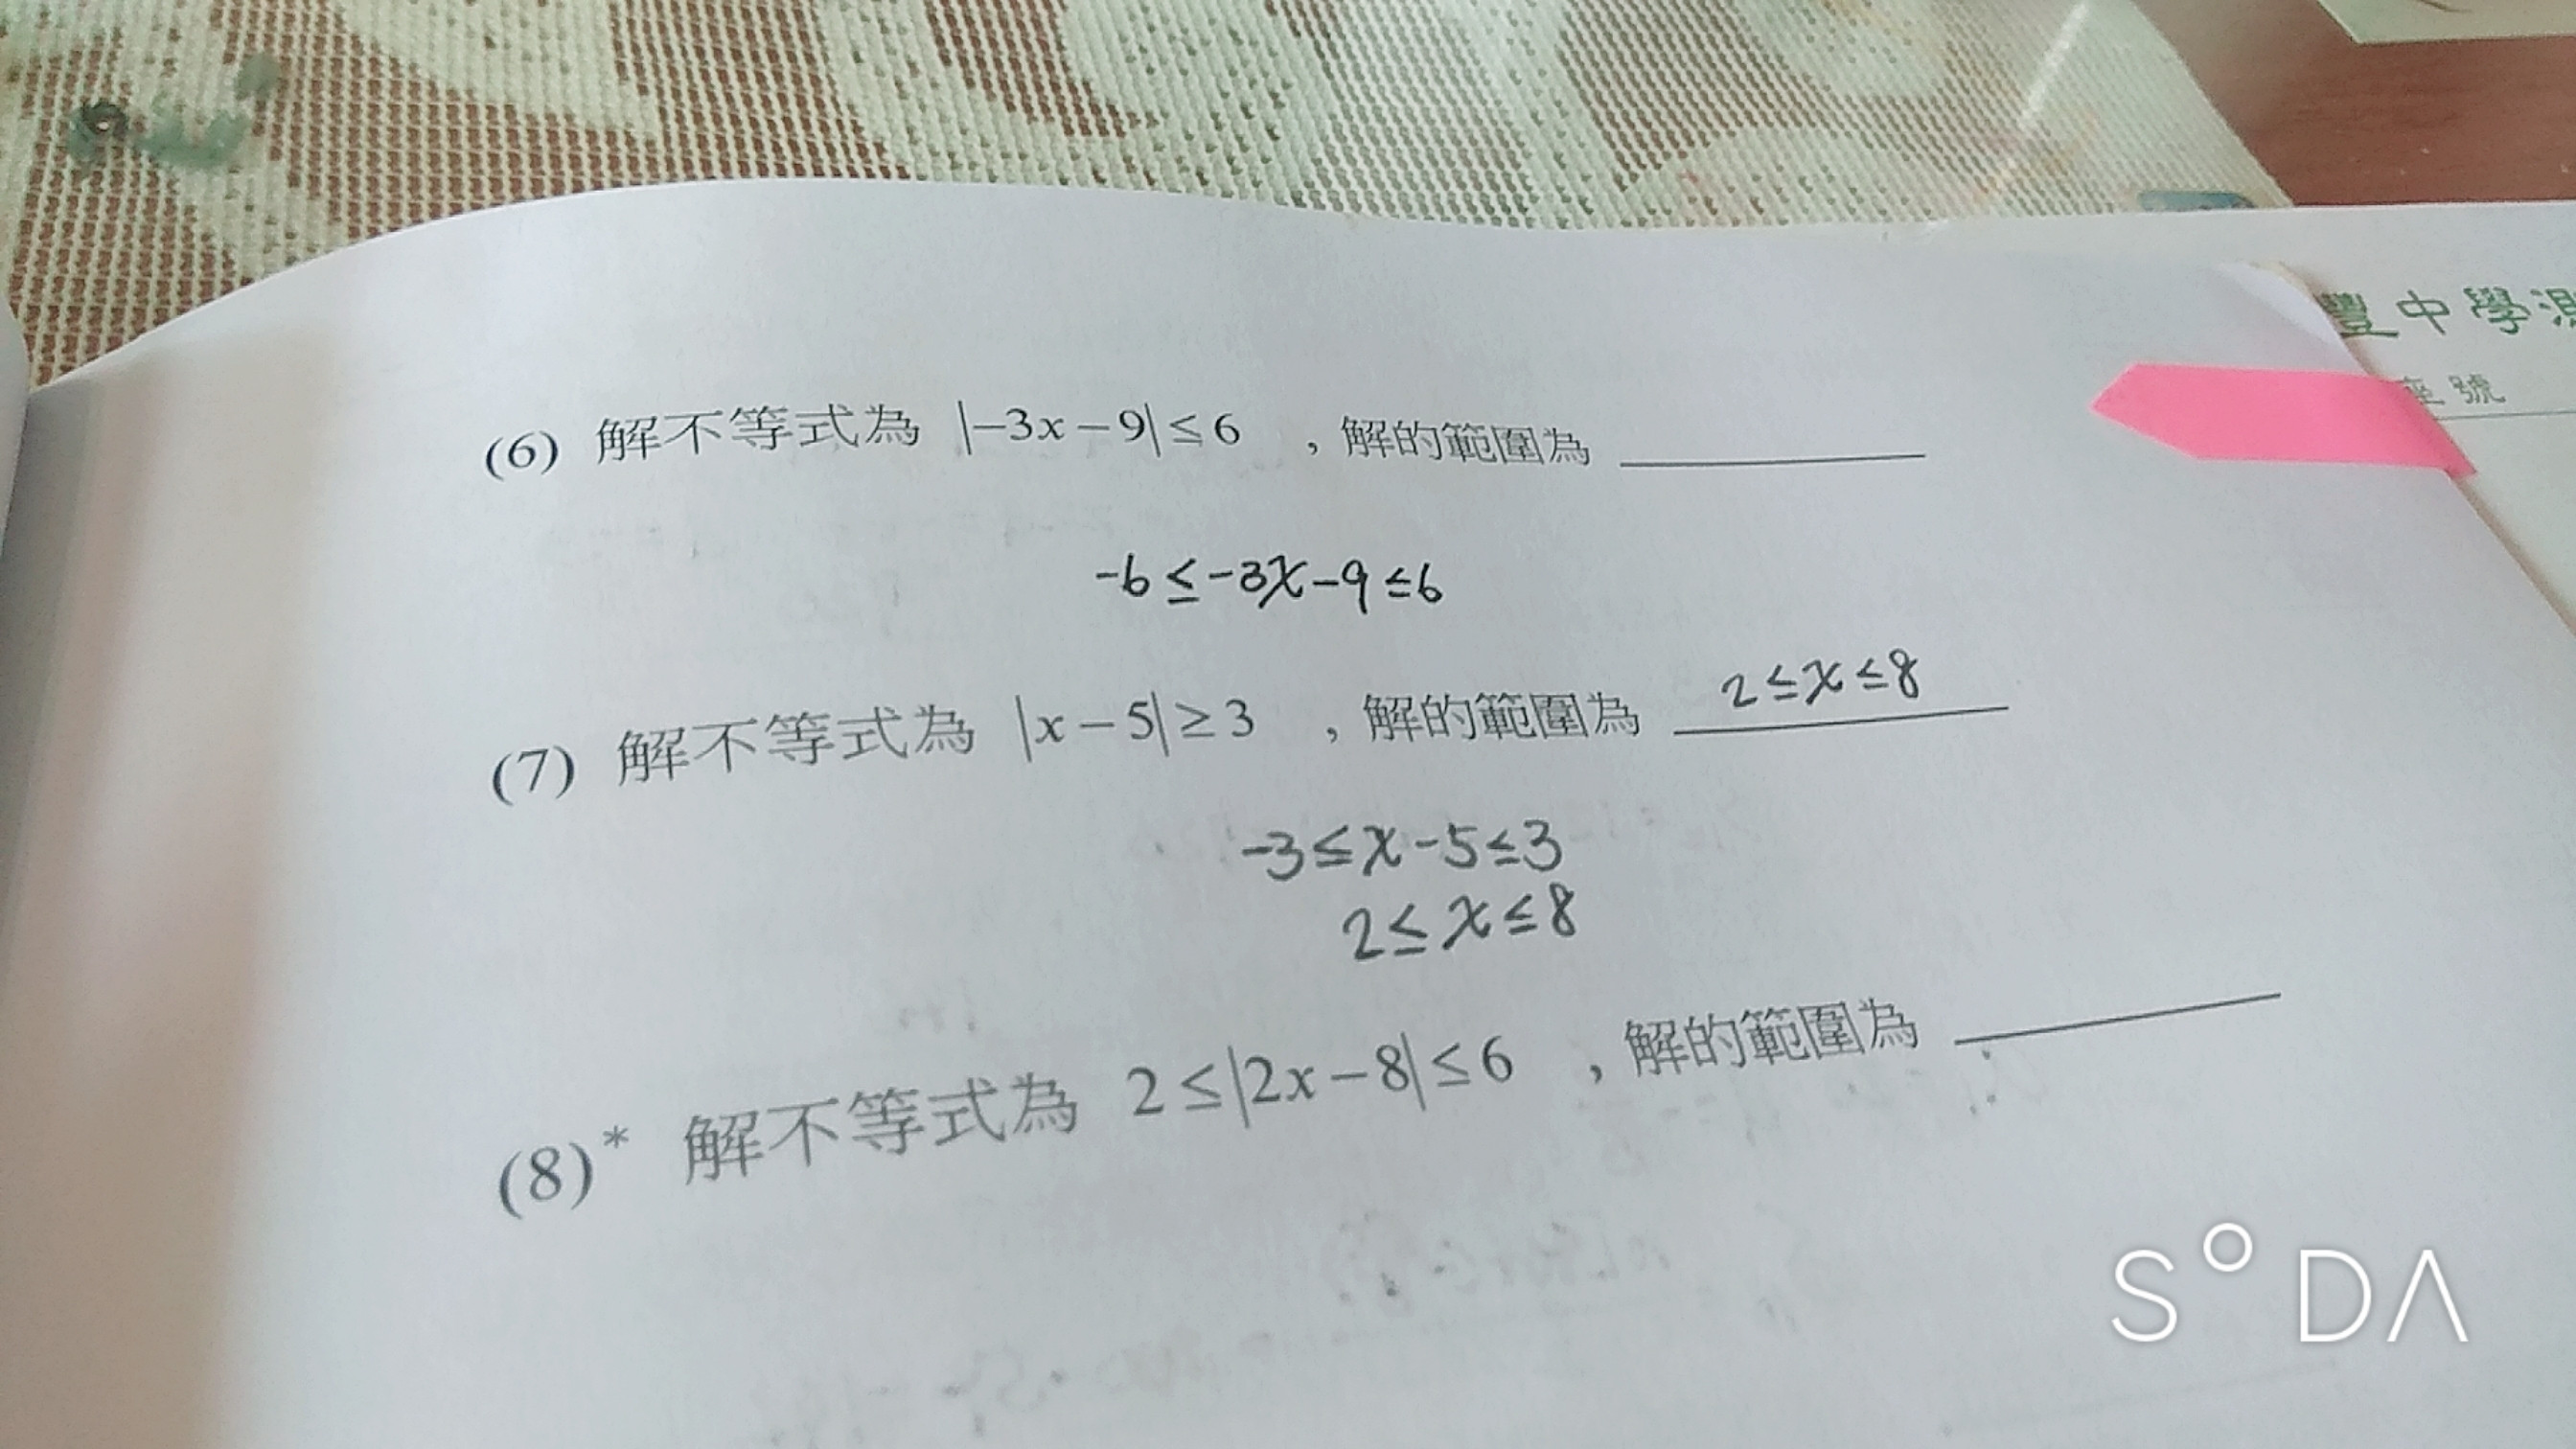 豐中學測
座號
(6) 解不等式為 |-3x-9|≤6 ,解的範圍為
-6≤-3x-9≤6
(7) 解不等式為 |x-5|≥3 ,解的範圍為 2≤x≤8
-3≤x-5≤3
2≤x≤8
(8)* 解不等式為 2≤|2x-8|≤6 ,解的範圍為
S°DA